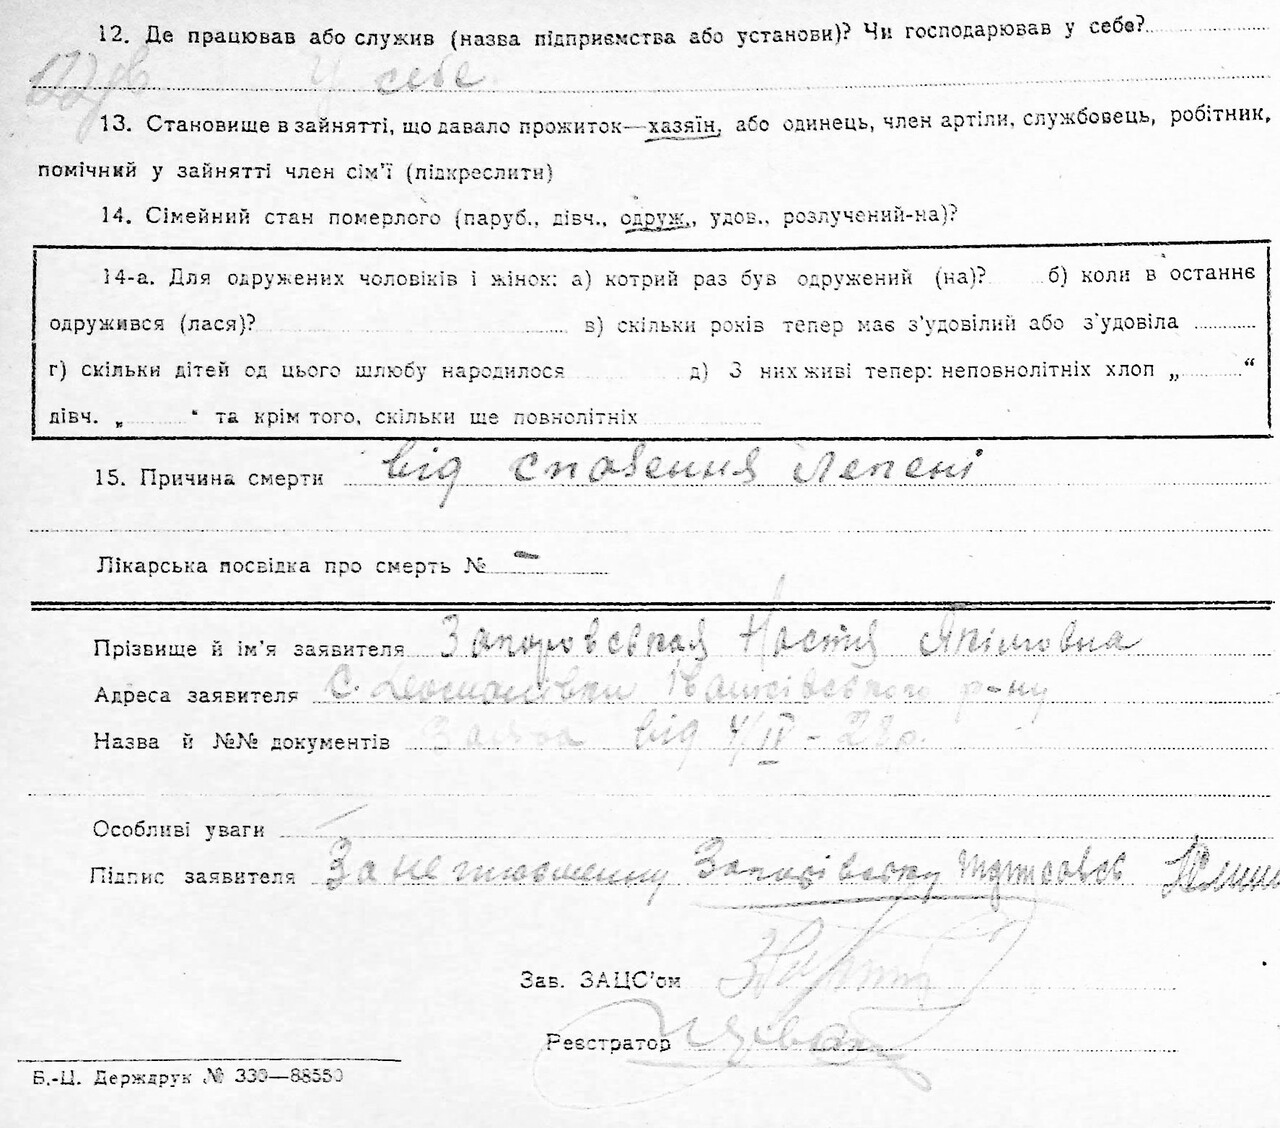 12. Де працював або служив (назва підприємства або установи)? Чи господарював у себе?
У себе
13. Становище в зайнятті, що давало прожиток—хазяїн, або одинець, член артіли, службовець, робітник,
помічний у зайнятті член сім'ї (підкреслити)
14. Сімейний стан померлого (паруб., дівч., одруж., удов., розлучений-на)?
14-а. Для одружених чоловіків і жінок: а) котрий раз був одружений (на)? б) коли в останнє
одружився (лася)? в) скільки років тепер має з'удовілий або з'удовіла
г) скільки дітей од цього шлюбу народилося д) З них живі тепер: неповнолітніх хлоп „ “
дівч. „ “ та крім того, скільки ще повнолітніх
15. Причина смерти від
Лікарська посвідка про смерть № —
Прізвище й ім'я заявителя Настя
Адреса заявителя с. р-ну
Назва й №№ документів Заява від 4/IV-
Особливі уваги
Підпис заявителя За
Зав. ЗАЦС'ом
Реєстратор
Б.-Ц. Держдрук № 330—88550